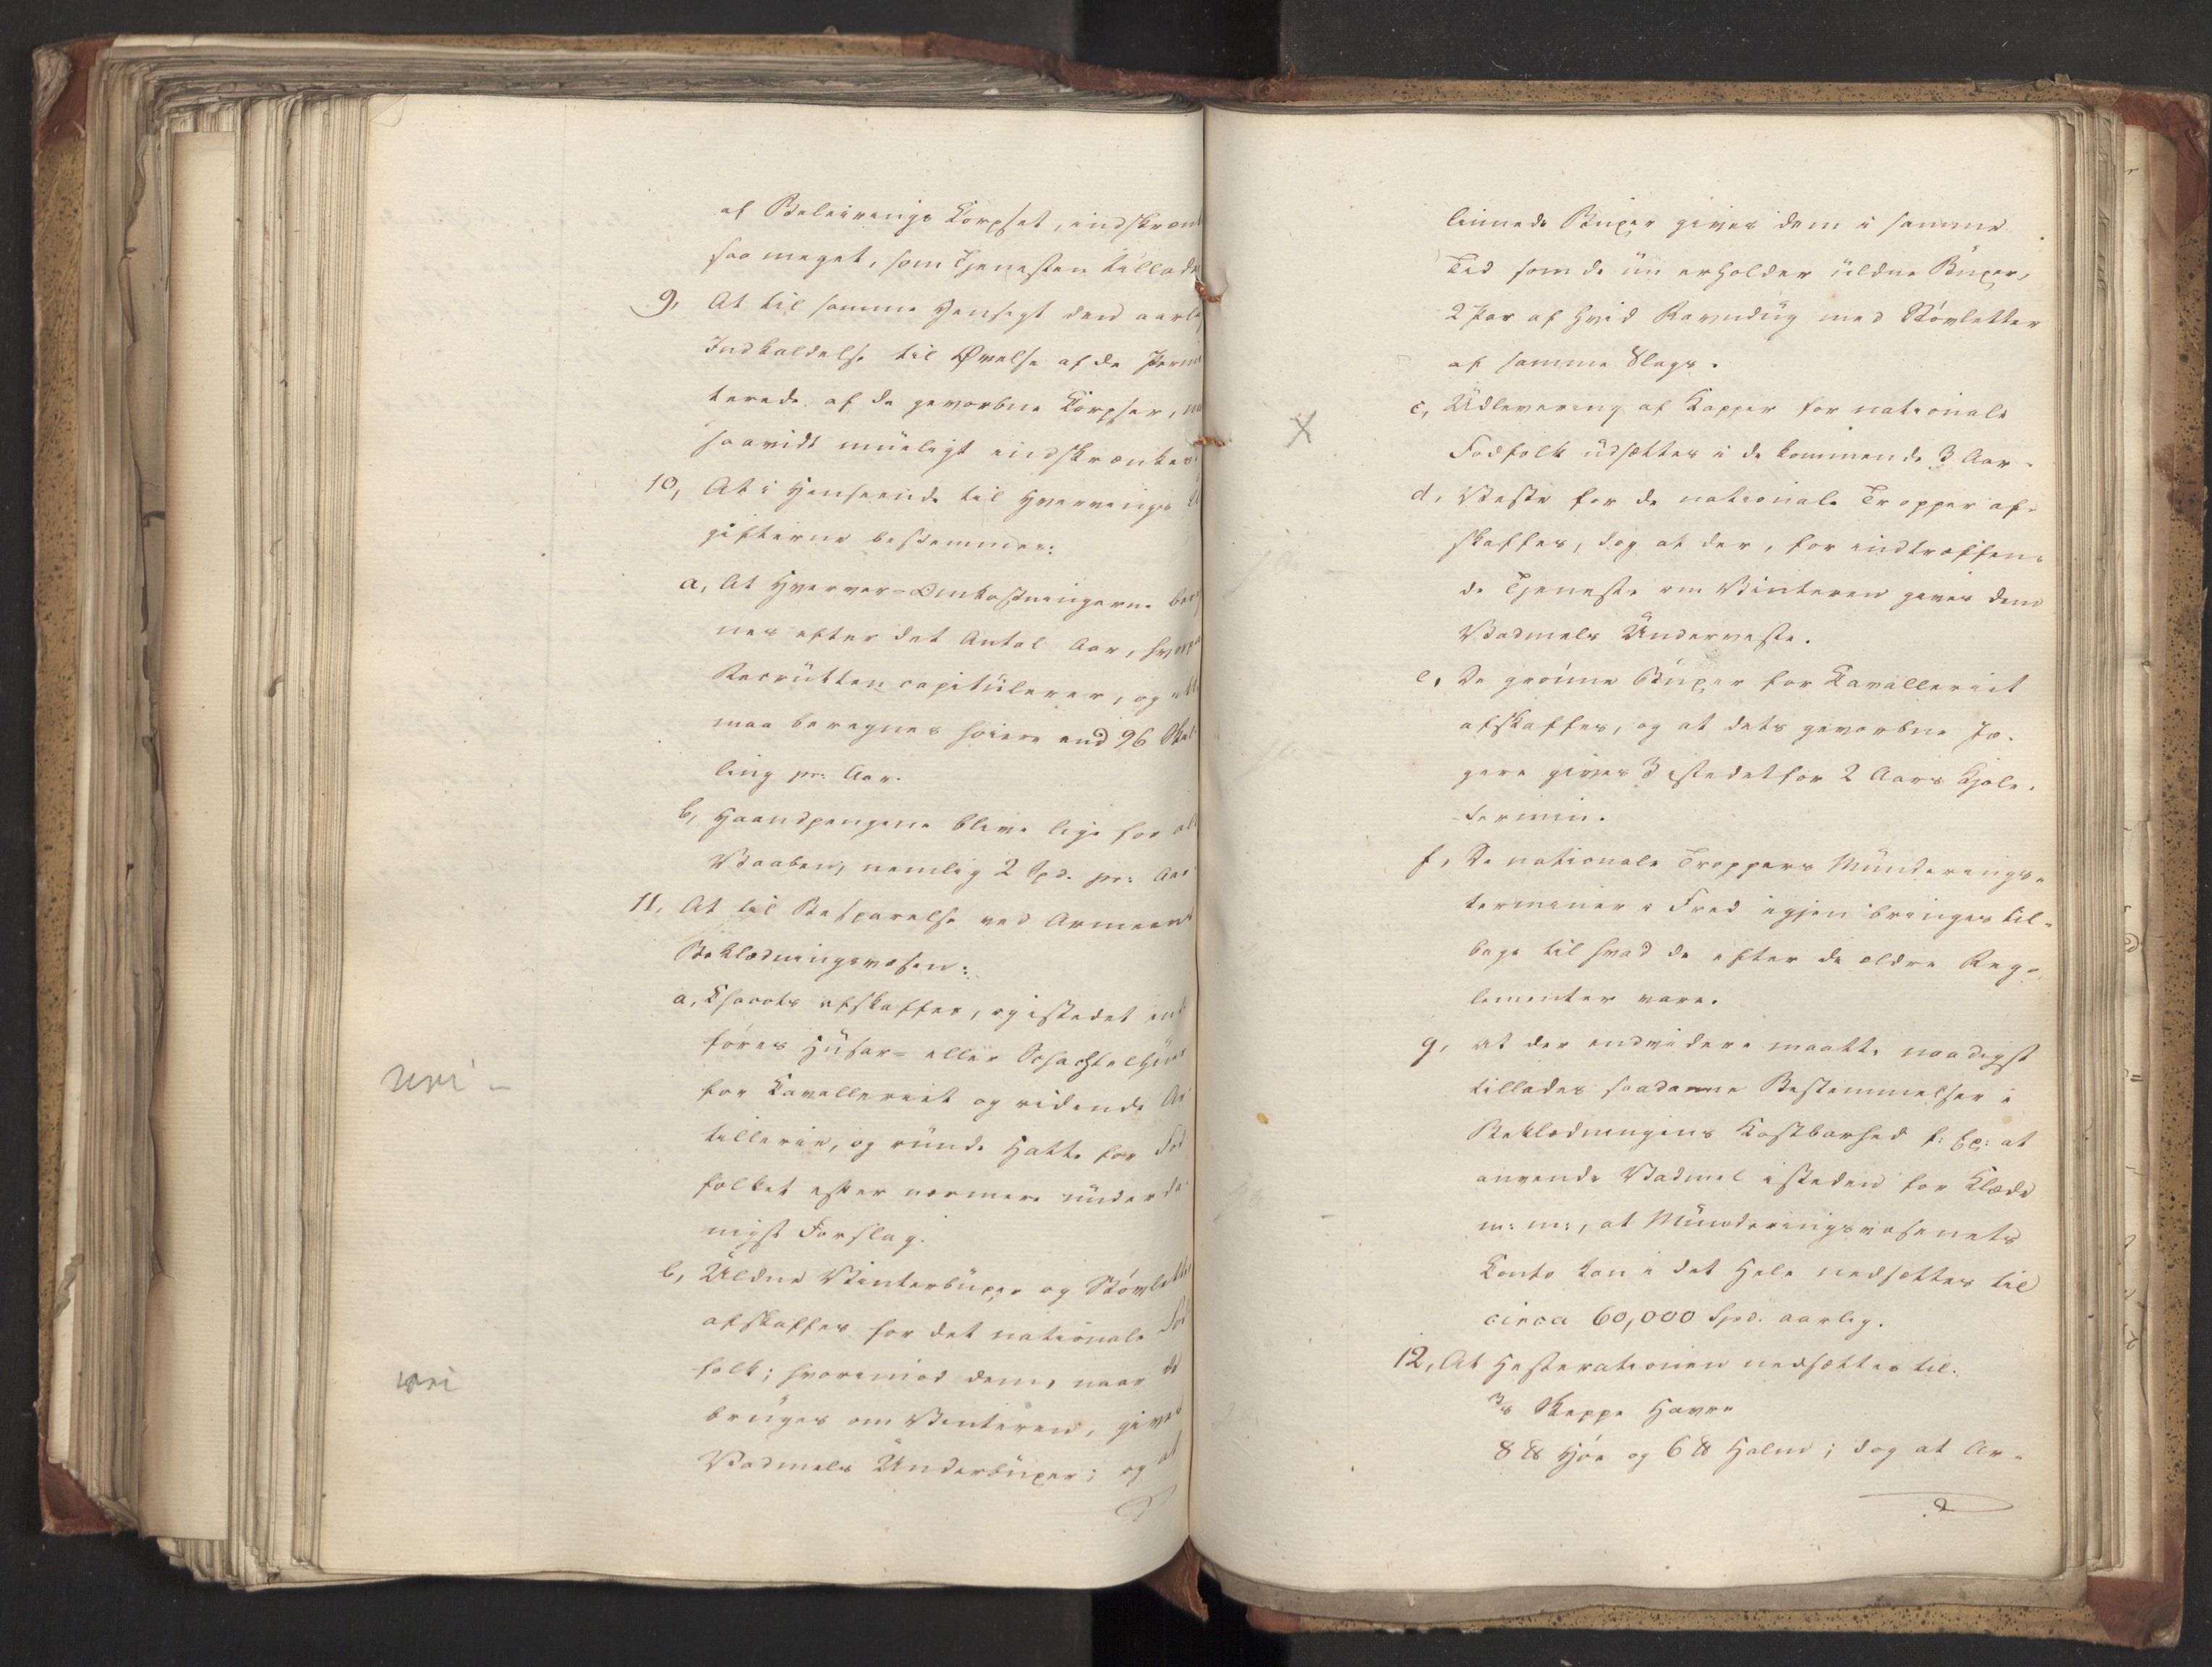 af Beleirings Corpset, indskrænk
saa meget, som Tjenesten tillade
9, At til samme Hensigt den aarl
Indkaldelse til Øvelse af de Permi
terede af de gevorbne Corpser,
saavidt mueligt indskrænkes.
10, At i Henseende til Hvervings
gifterne bestemmes:
a, At Hverver-Omkostningerne be
nes efter det Antal Aar, hvor
Recrutten capitulerer, og
maa beregnes høiere end 96 Skil
ling pr: Aar.
b, Haandpengene blive lige for al
Vaaben, nemlig 2 Spd. pr: Aar
11, At til Besparelse ved Armeens
Beklædningsvæsen:
a, Chacots afskaffes, og istedet ind
føres Husar- eller Schachtelhuer
for Cavalleriet og ridende Ar
tillerie, og runde Hatte for Fod
folket efter nærmere underda
nigst Forslag.
nei -
b, Uldne Vinterbuxer og Støvlette
afskaffes for det nationale Fod
folk; hvorimod dem, naar de
nei
bruges om Vinteren, gives
Vadmels Underbuxer; og at
linnede Buxer gives dem i samme
Tid som de nu erholder uldne Buxer,
2 Par af hvid Ravndug med Støvletter
af samme Slags.
c, Udlevering af Kapper for nationale
X
Fodfolk udsættes i de kommende 3 Aar.
d, Veste for de nationale Tropper af-
skaffes, dog at der, for indtræffen-
de Tjeneste om Vinteren gives dem
Vadmels Underveste.
e, De grønne Buxer for Cavalleriet
afskaffes, og at dets gevorbne Jæ-
gere gives 3 istedetfor 2 Aars Kjole-
termin.
f, De nationale Troppers Munderings-
terminer i Fred igjen bringes til-
bage til hvad de efter de ældre Reg-
lementer vare.
g, at der endvidere maatte naadigst
tillades saadanne Bestemmelser i
Beklædningens Kostbarhed f: Ex: at
anvende Vadmel isteden for Klæde
m: m:, at Munderingsvæsenets
Conto kan i det Hele nedsættes til
circa 60,000 Spd. aarlig.
12, At Hesterationen nedsættes til:
3/8 Skeppe Havre
8 ℔ Høe og 6 ℔ Halm; dog at Ar-